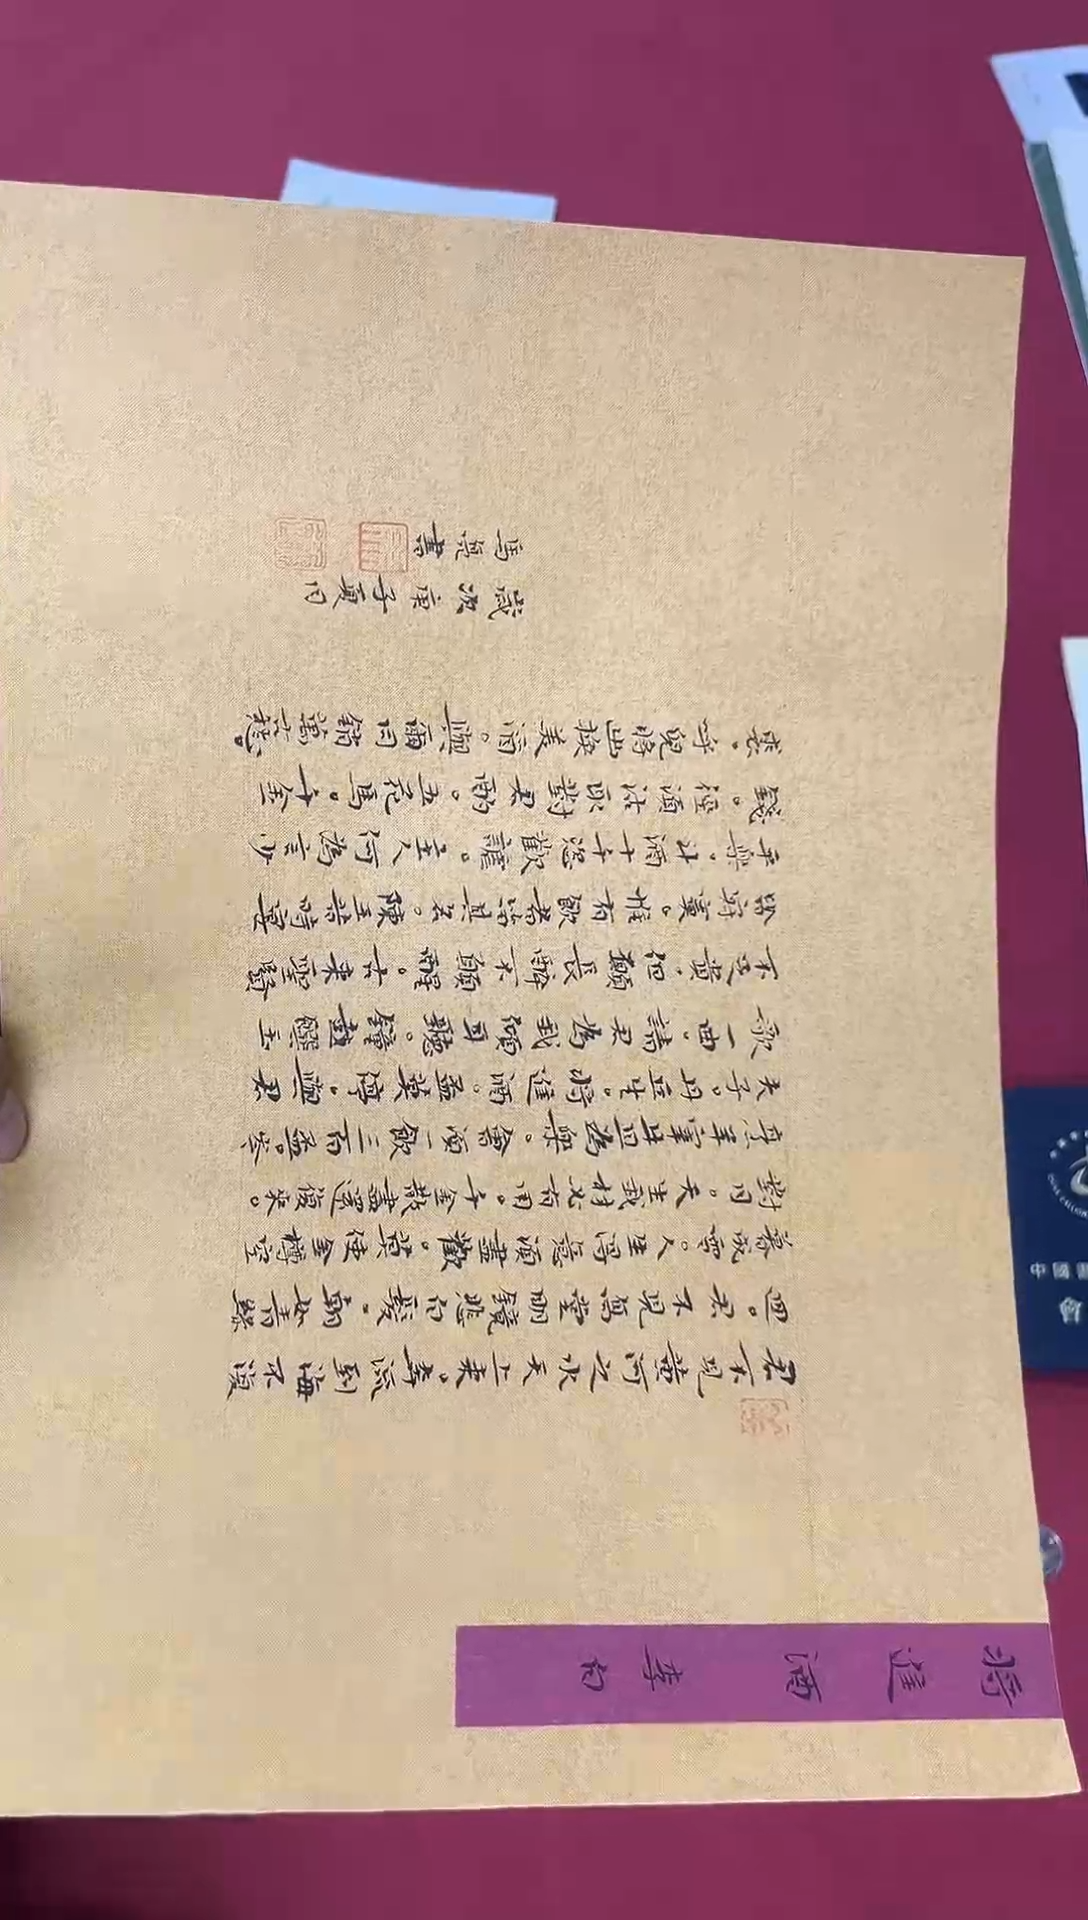 將進酒 李白
君不見黃河之水天上來。奔流到海不復
回。君不見高堂明鏡悲白髮。朝如青絲
暮成雪。人生得意須盡歡。莫使金樽空
對月。天生我材必有用。千金散盡還復來。
烹羊宰牛且為樂。會須一飲三百盃。岑
夫子。丹丘生。將進酒。盃莫停。與君
歌一曲。請君為我傾耳聽。鐘鼓饌玉
不足貴。但願長醉不願醒。古來聖賢
皆寂寞。惟有飲者留其名。陳王昔時宴
平樂。斗酒十千恣歡謔。主人何為言少
錢。徑須沽取對君酌。五花馬。千金
裘。呼兒將出換美酒。與爾同銷萬古愁。
歲次庚子夏日
馬 書
中國
會